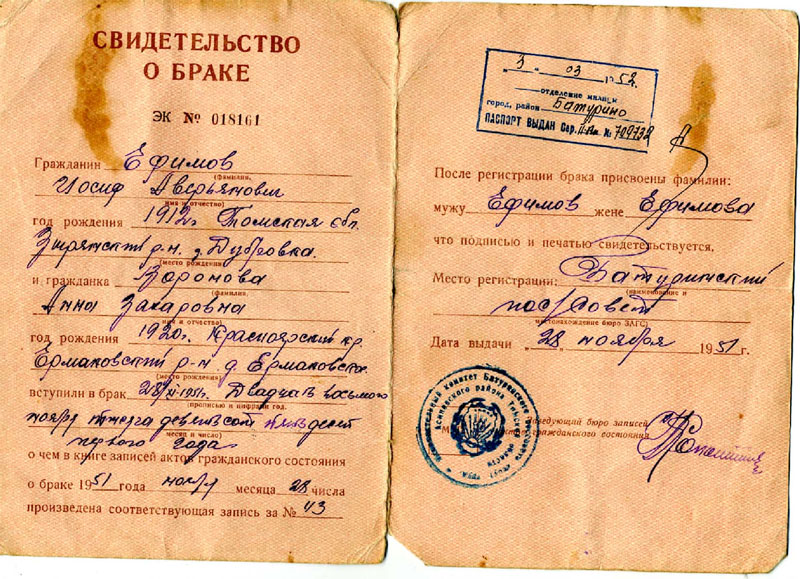 СВИДЕТЕЛЬСТВО
О БРАКЕ
ЭК № 018161
Гражданин Ефимов
(фамилия,
Иосиф Аверьянович
имя и отчество)
год рождения 1912г Томская обл.
Зырянский р-н. д. Дубровка.
(место рождения)
и гражданка Воронова
(фамилия,
Анна Захаровна
имя и отчество)
год рождения 1920г. Красноярский кр.
Ермаковский р-н д. Ермаковское
(место рождения)
вступили в брак 28/XI-1951г. Двадцать восьмого
(прописью и цифрами год,
ноября тысяча девятьсот пятьдесят
месяц и число)
первого года
о чем в книге записей актов гражданского состояния
о браке 1951 года ноября месяца 28 числа
произведена соответствующая запись за № 43
3 03 1952
отделение милиции
город, район Батурино
ПАСПОРТ ВЫДАН Сер. № 709732
После регистрации брака присвоены фамилии:
мужу Ефимов жене Ефимова
что подписью и печатью свидетельствуется.
Место регистрации: Батуринский
(наименование и
пос/Совет
местонахождение бюро ЗАГС)
Дата выдачи 28 ноября 1951 г.
Заведующий бюро записей
актов гражданского состояния
Исполнительный комитет Батуринского
Асиновского района Томской области